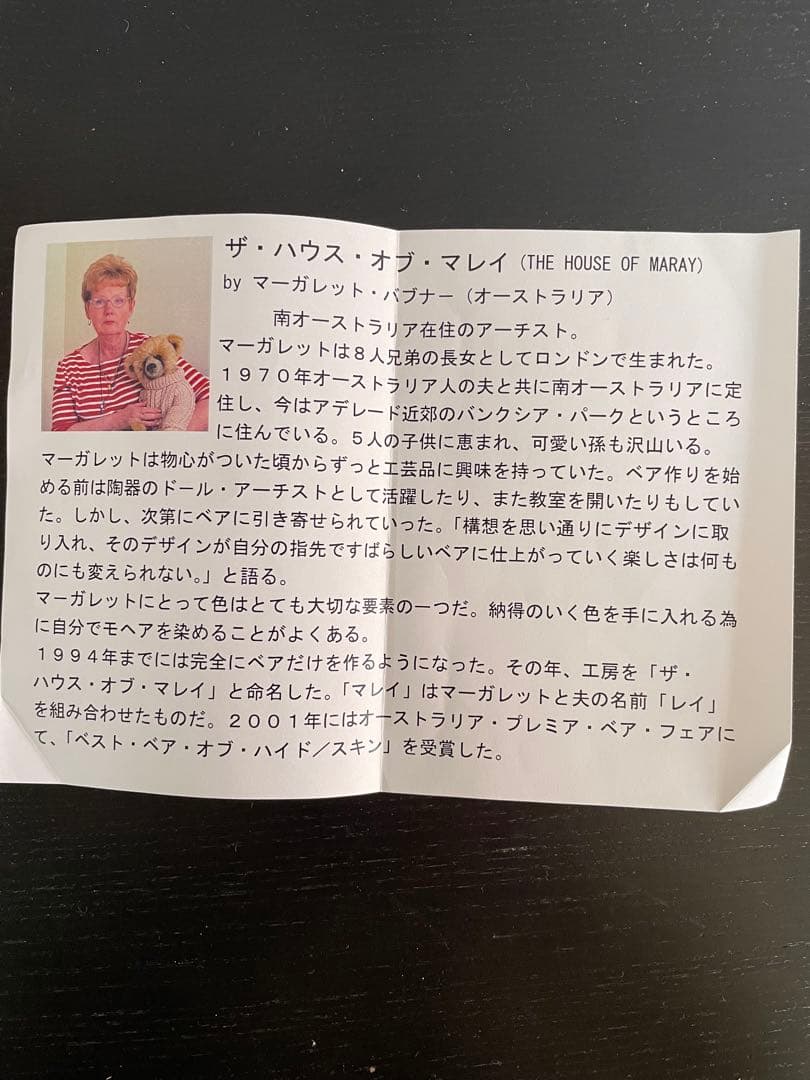 ザ・ハウス・オブ・マレイ（THE HOUSE OF MARAY）
by マーガレット・バブナー（オーストラリア）
南オーストラリア在住のアーチスト。
マーガレットは８人兄弟の長女としてロンドンで生まれた。
１９７０年オーストラリア人の夫と共に南オーストラリアに定
住し、今はアデレード近郊のバンクシア・パークというところ
に住んでいる。５人の子供に恵まれ、可愛い孫も沢山いる。
マーガレットは物心がついた頃からずっと工芸品に興味を持っていた。ベア作りを始
める前は陶器のドール・アーチストとして活躍したり、また教室を開いたりもしてい
た。しかし、次第にベアに引き寄せられていった。「構想を思い通りにデザインに取
り入れ、そのデザインが自分の指先ですばらしいベアに仕上がっていく楽しさは何も
のにも変えられない。」と語る。
マーガレットにとって色はとても大切な要素の一つだ。納得のいく色を手に入れる為
に自分でモヘアを染めることがよくある。
１９９４年までには完全にベアだけを作るようになった。その年、工房を「ザ・
ハウス・オブ・マレイ」と命名した。「マレイ」はマーガレットと夫の名前「レイ」
を組み合わせたものだ。２００１年にはオーストラリア・プレミア・ベア・フェアに
て、「ベスト・ベア・オブ・ハイド／スキン」を受賞した。